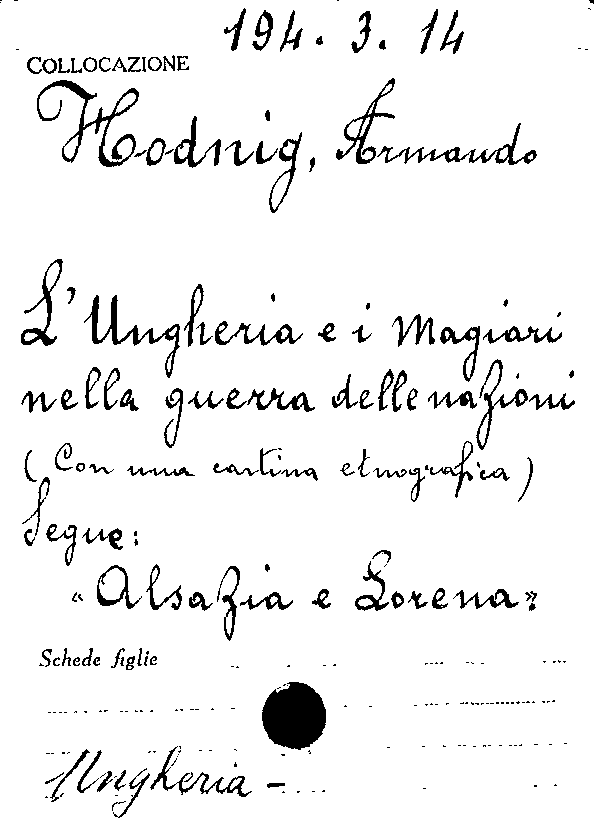 194. 3. 14
COLLOCAZIONE
Hodnig, Armando
L'Ungheria e i Magiari
nella guerra delle nazioni
(Con una cartina etnografica)
Segue:
"Alsazia e Lorena"
Schede figlie
Ungheria -